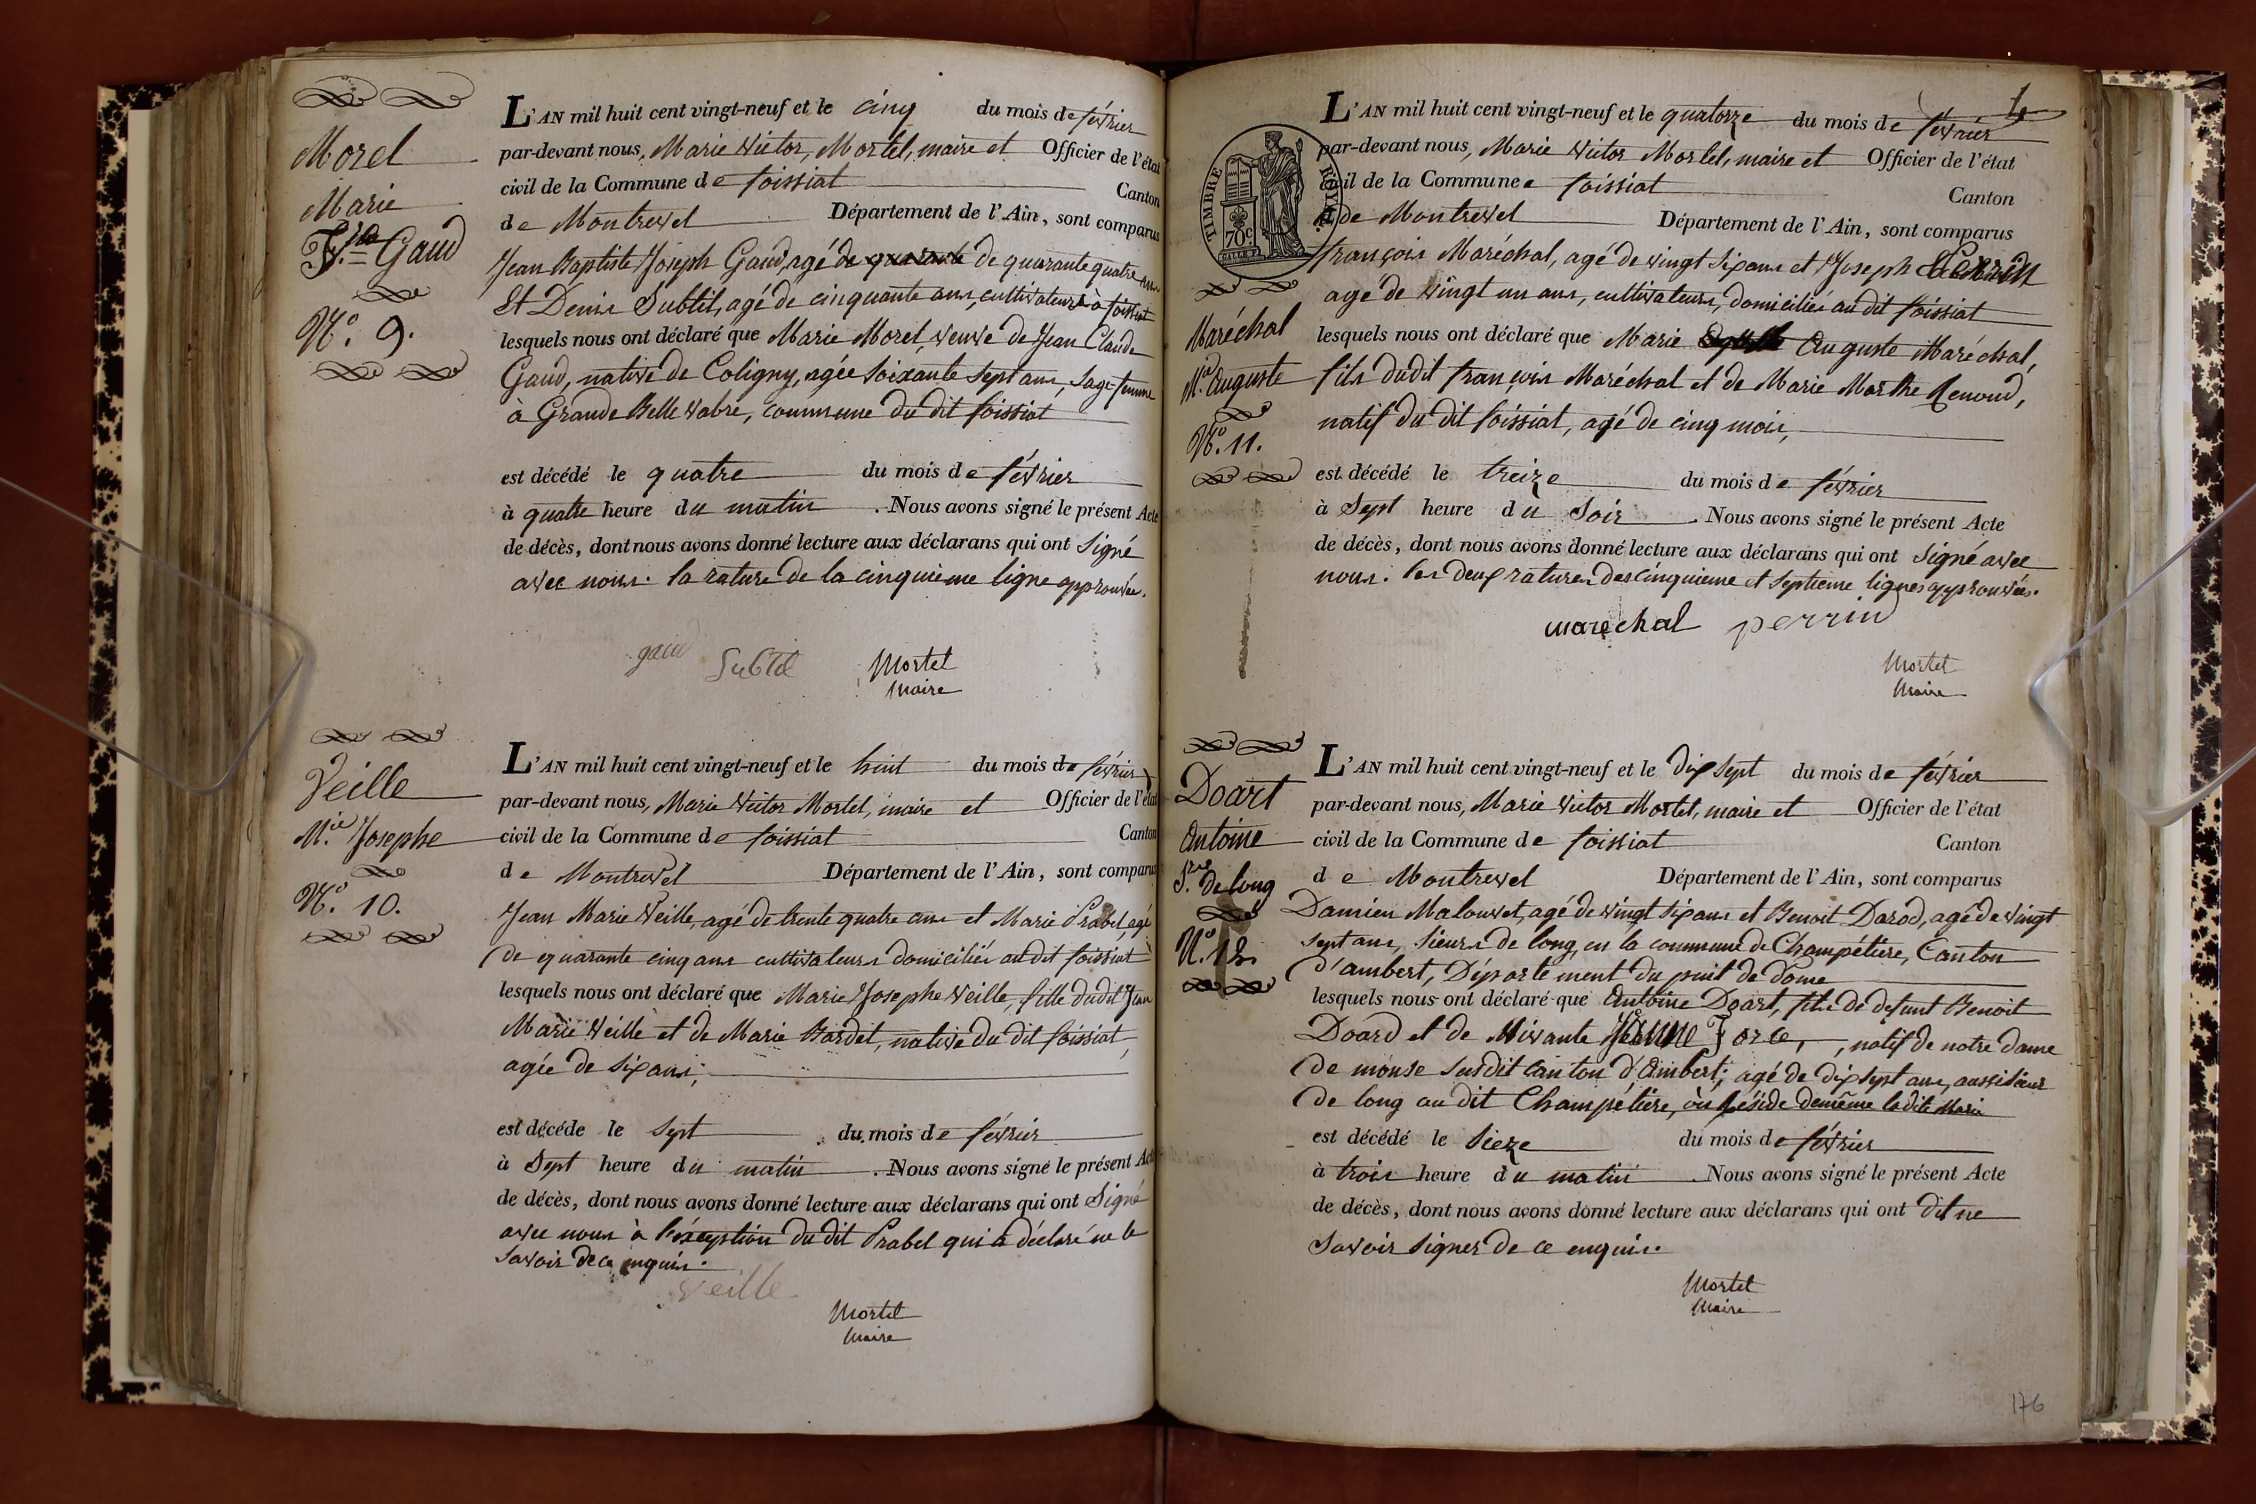 Morel
Marie
V.ve Gaud
N.o 9.
L'AN mil huit cent vingt-neuf et le cinq du mois de février
par-devant nous, Marie Victor, Mortel, maire et Officier de l'état
civil de la Commune de foissiat Canton
de Montrevel Département de l'Ain, sont comparus
Jean Baptiste Joseph Gaud, agé de quarante de quarante quatre ans
Et Denis Subtil, agé de cinquante ans, cultivateurs à foissiat
lesquels nous ont déclaré que Marie Morel, veuve de Jean Claude
Gaud, native de Coligny, agée soixante sept ans, sage-femme
à Grande Belle vavre, commune du dit foissiat
est décédé le quatre du mois de février
à quatre heure du matin . Nous avons signé le présent Acte
de décès, dont nous avons donné lecture aux déclarans qui ont signé
avec nous. la rature de la cinquieme ligne approuvée.
gaud Subtil Mortel
Maire
Veille
M.ie Josephe
N.o 10.
L'AN mil huit cent vingt-neuf et le huit du mois de février
par-devant nous, Marie Victor Mortel, maire et Officier de l'état
civil de la Commune de foissiat Canton
de Montrevel Département de l'Ain, sont comparus
Jean Marie Veille, agé de trente quatre ans et Marie Prabel, agé
de quarante cinq ans cultivateurs domiciliés au dit foissiat
lesquels nous ont déclaré que Marie Josephe Veille, fille dudit Jean
Marie Veille et de Marie Bardet, native du dit foissiat,
agée de six ans;
est décédé le sept du mois de février
à Sept heure du matin . Nous avons signé le présent Acte
de décès, dont nous avons donné lecture aux déclarans qui ont Signé
avec nous à l'éxception du dit Prabel qui a déclaré ne le
savoir de ce enquis.
veille
Mortel
Maire
4
TIMBRE ROYAL
70c
Maréchal
M.ie Auguste
N.o 11.
L'AN mil huit cent vingt-neuf et le quatorze du mois de février
par-devant nous, Marie Victor Mortel, maire et Officier de l'état
civil de la Commune foissiat Canton
de Montrevel Département de l'Ain, sont comparus
françois Maréchal, agé de vingt six ans et Joseph Perrin
agé de vingt un ans, cultivateurs, domiciliés au dit foissiat
lesquels nous ont déclaré que Marie Auguste Maréchal,
fils dudit françois Maréchal et de Marie Marthe Renoud,
natif du dit foissiat, agé de cinq mois,
est décédé le treize du mois de février
à Sept heure du Soir . Nous avons signé le présent Acte
de décès, dont nous avons donné lecture aux déclarans qui ont signé avec
nous. les deux ratures des cinquieme et septieme lignes approuvées.
marechal perrin
Mortel
Maire
Doart
Antoine
S.eur de long
N.o 12.
L'AN mil huit cent vingt-neuf et le dix sept du mois de février
par-devant nous, Marie Victor Mortel, maire et Officier de l'état
civil de la Commune de foissiat Canton
de Montrevel Département de l'Ain, sont comparus
Damien Malouvet, agé de vingt six ans et Benoit Darod, agé de vingt
sept ans, sieurs de long, en la commune de Champétiere, Canton
d'ambert, Département du puit de dome
lesquels nous ont déclaré que Antoine Doart, fils de defunt Benoit
Doard et de vivante Jeanne Force, , natif de notre dame
de monse susdit canton d'Ambert; agé de dix sept ans, aussi sieur
de long au dit Champétiere, où réside demême la dite Marie
est décédé le sieze du mois de février
à trois heure du matin . Nous avons signé le présent Acte
de décès, dont nous avons donné lecture aux déclarans qui ont dit ne
savoir signer de ce enquis.
Mortel
Maire
176